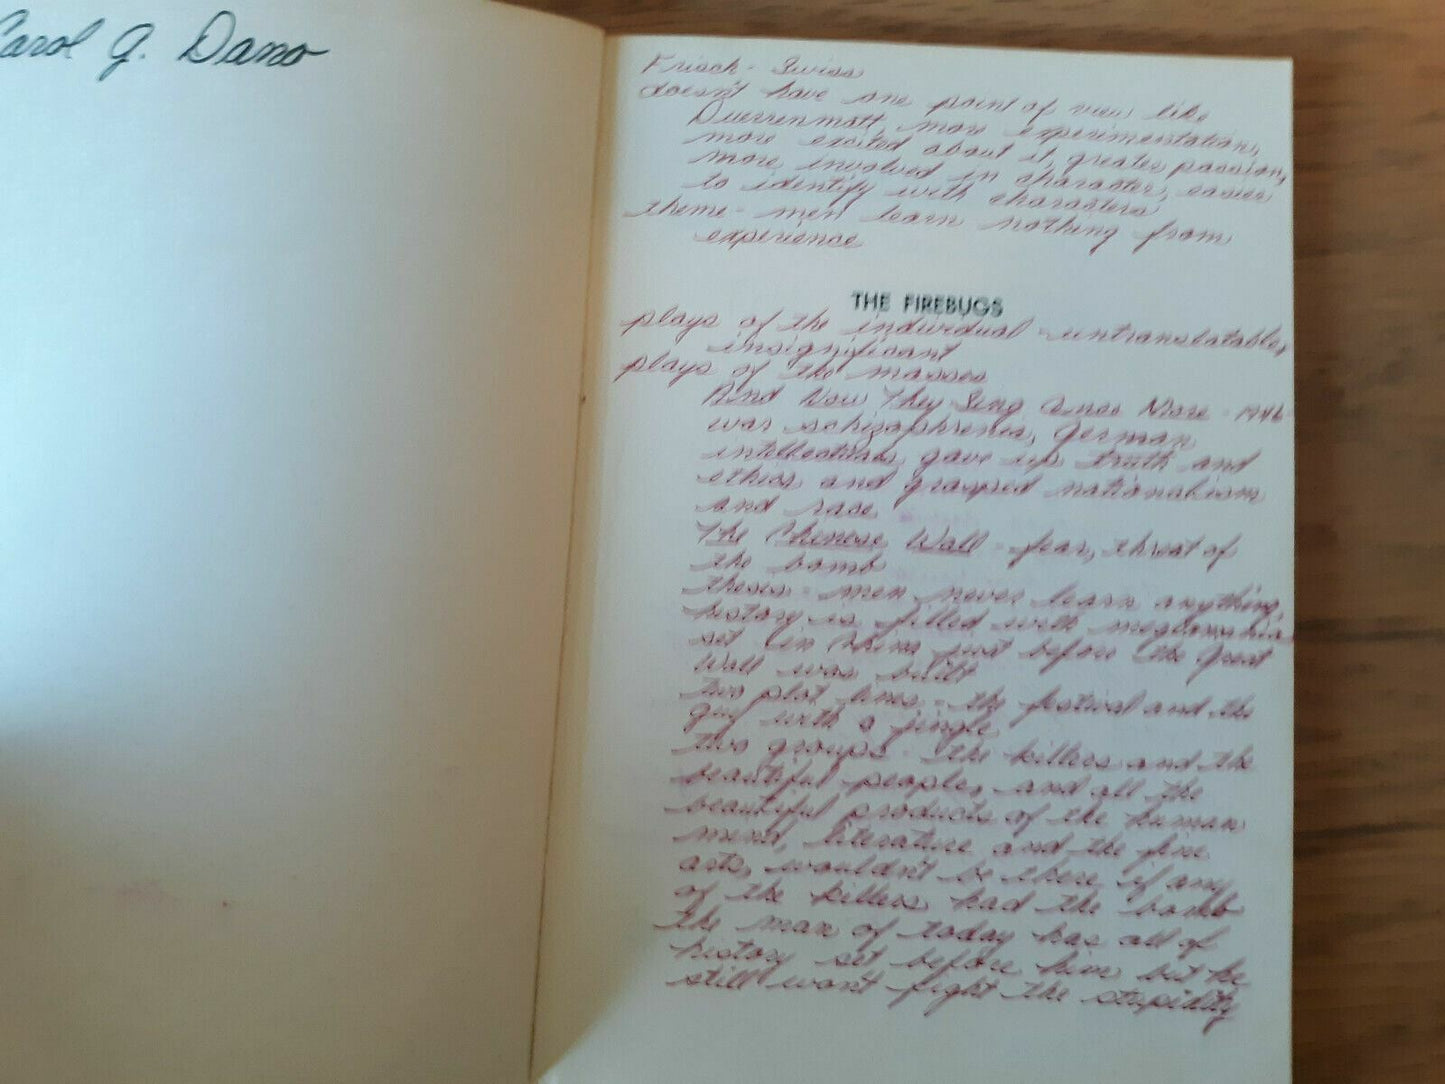 Carol G. Dano
Frisch - Swiss
doesn't have one point of view like
Duerrenmatt, more experimentation,
more excited about it, greater passion,
more involved in character, easier
to identify with characters
theme - men learn nothing from
experience
THE FIREBUGS
plays of the individual - untranslatable,
insignificant
plays of the masses
And Now They Sing Once More - 1946
was schizophrenia, German
intellectuals gave up truth and
ethics and grasped nationalism
and race
The Chinese Wall - fear, threat of
the bomb
thesis - men never learn anything,
history is filled with
set in just before the Great
Wall was built
two plot lines - the festival and the
guy with a jingle
two groups - the killers and the
beautiful people, and all the
beautiful products of the human
mind, literature and the fine
arts, wouldn't be there if any
of the killers had the bomb
the man of today has all of
history set before him but he
still won't fight the stupidity